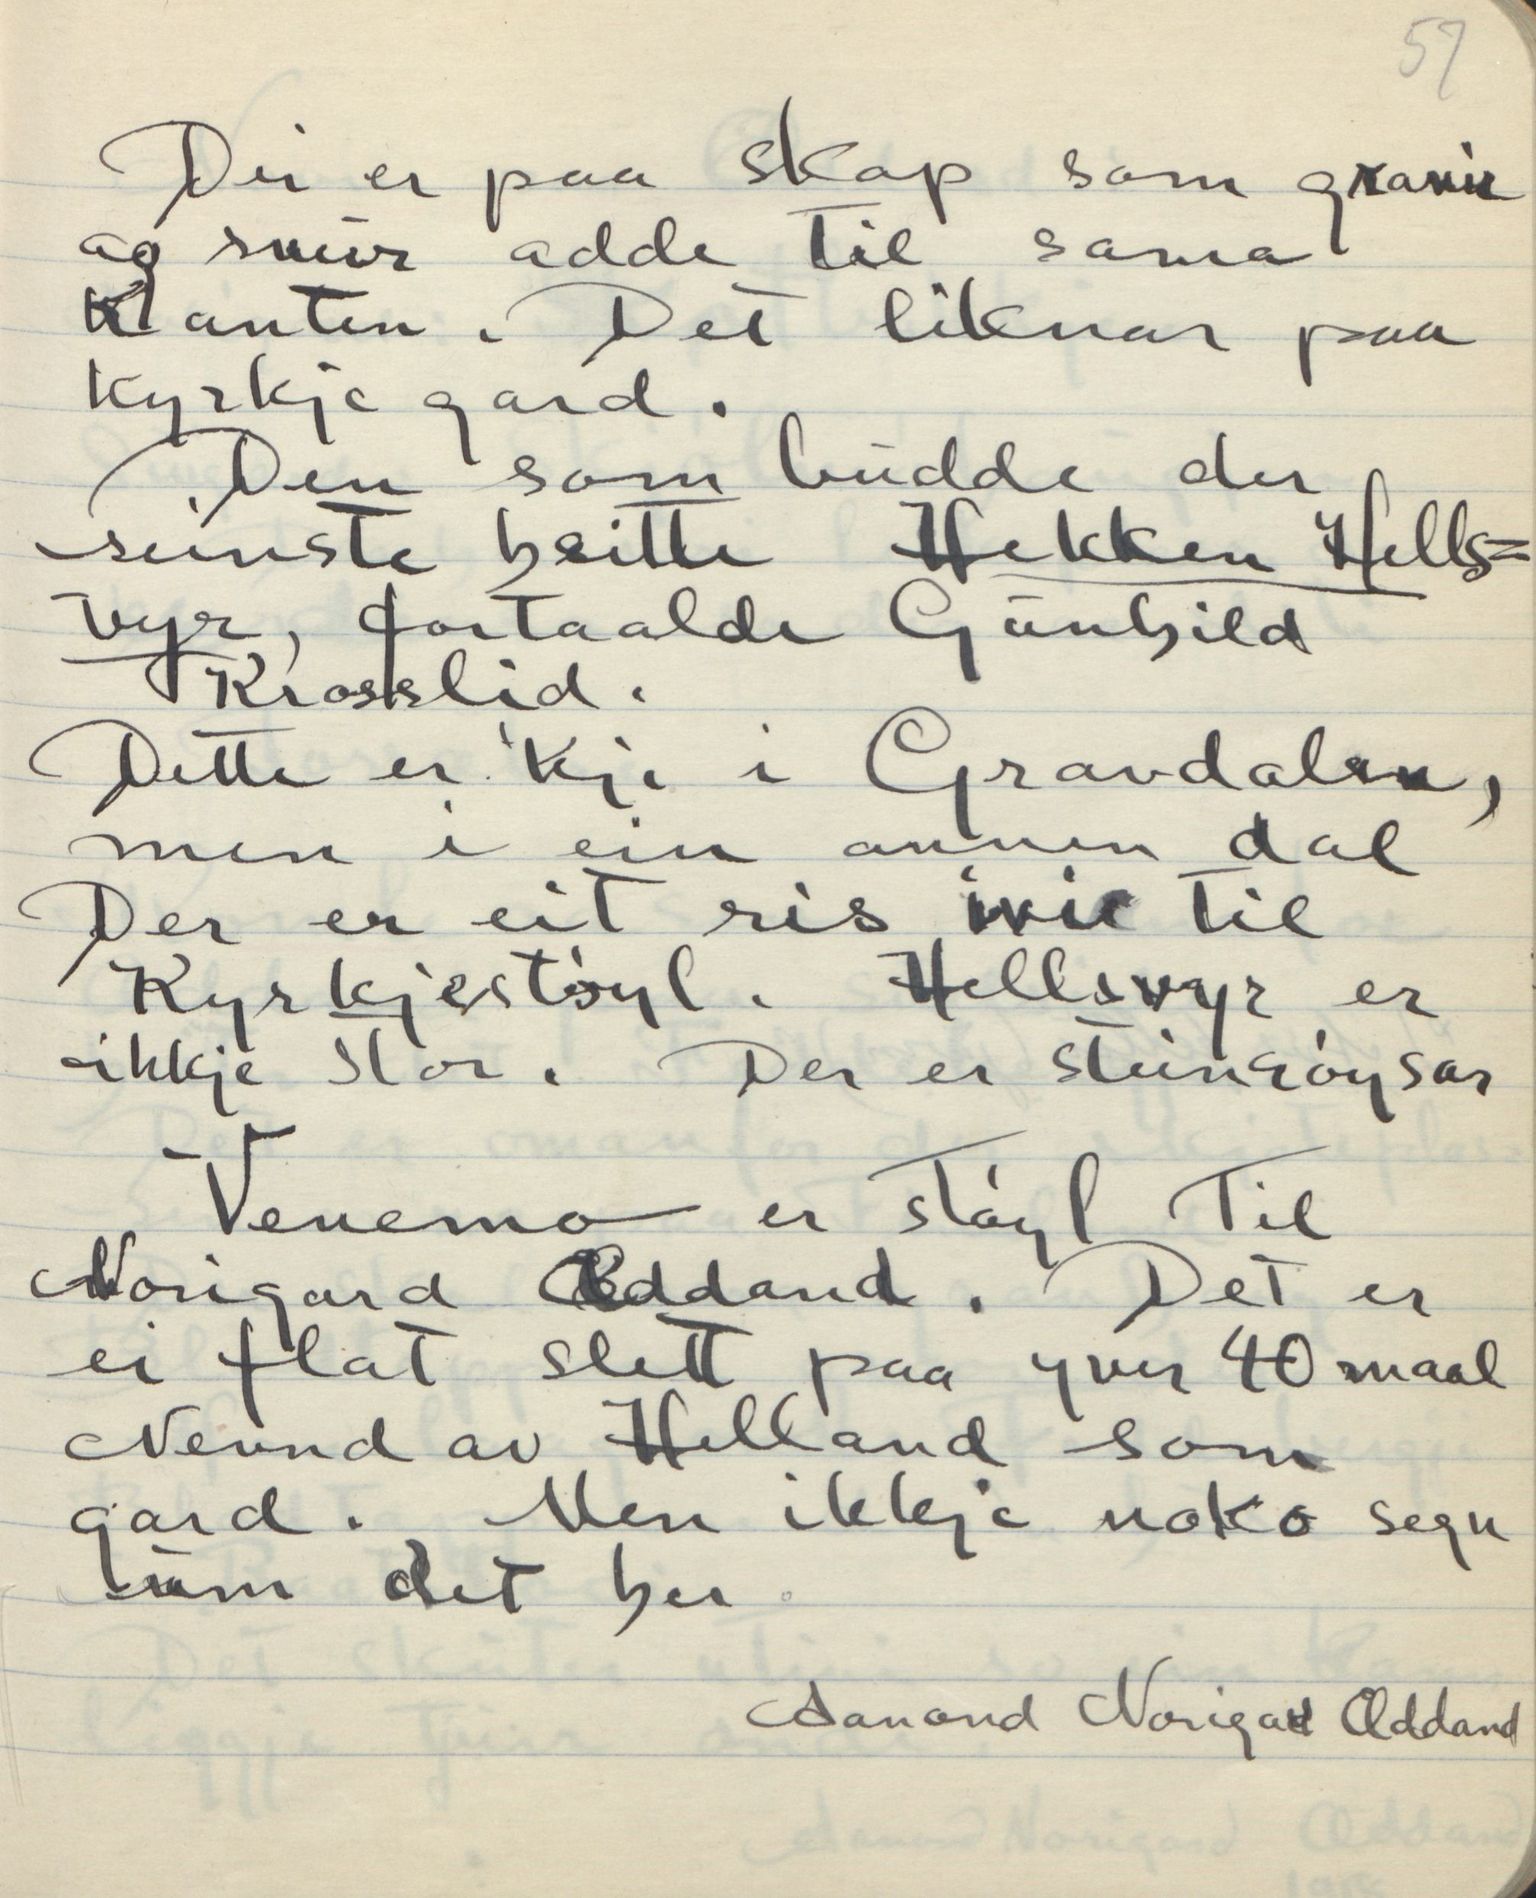 57
Dei er paa skap som gravir
ag snur adde til sama
Kanten. Det liknar paa
kyrkjegard.
Den som budde der
seinste heitte Hekken Hells=
vyr, fortaalde Gunhild
Krosslid.
Dette er 'kje i Gravdalen,
men i ein annen dal
Der er eit ris ivir til
Kyrkjestøyl. Hellsvyr er
ikkje stor. Der er steinrøysar
Venemo er støyl til
Norigard Øddand. Det er
ei flat slett paa yver 40 maal
Nevnd av Helland som
gard. Men ikkje noko segn
um det her.
Aanond Norigard Øddand